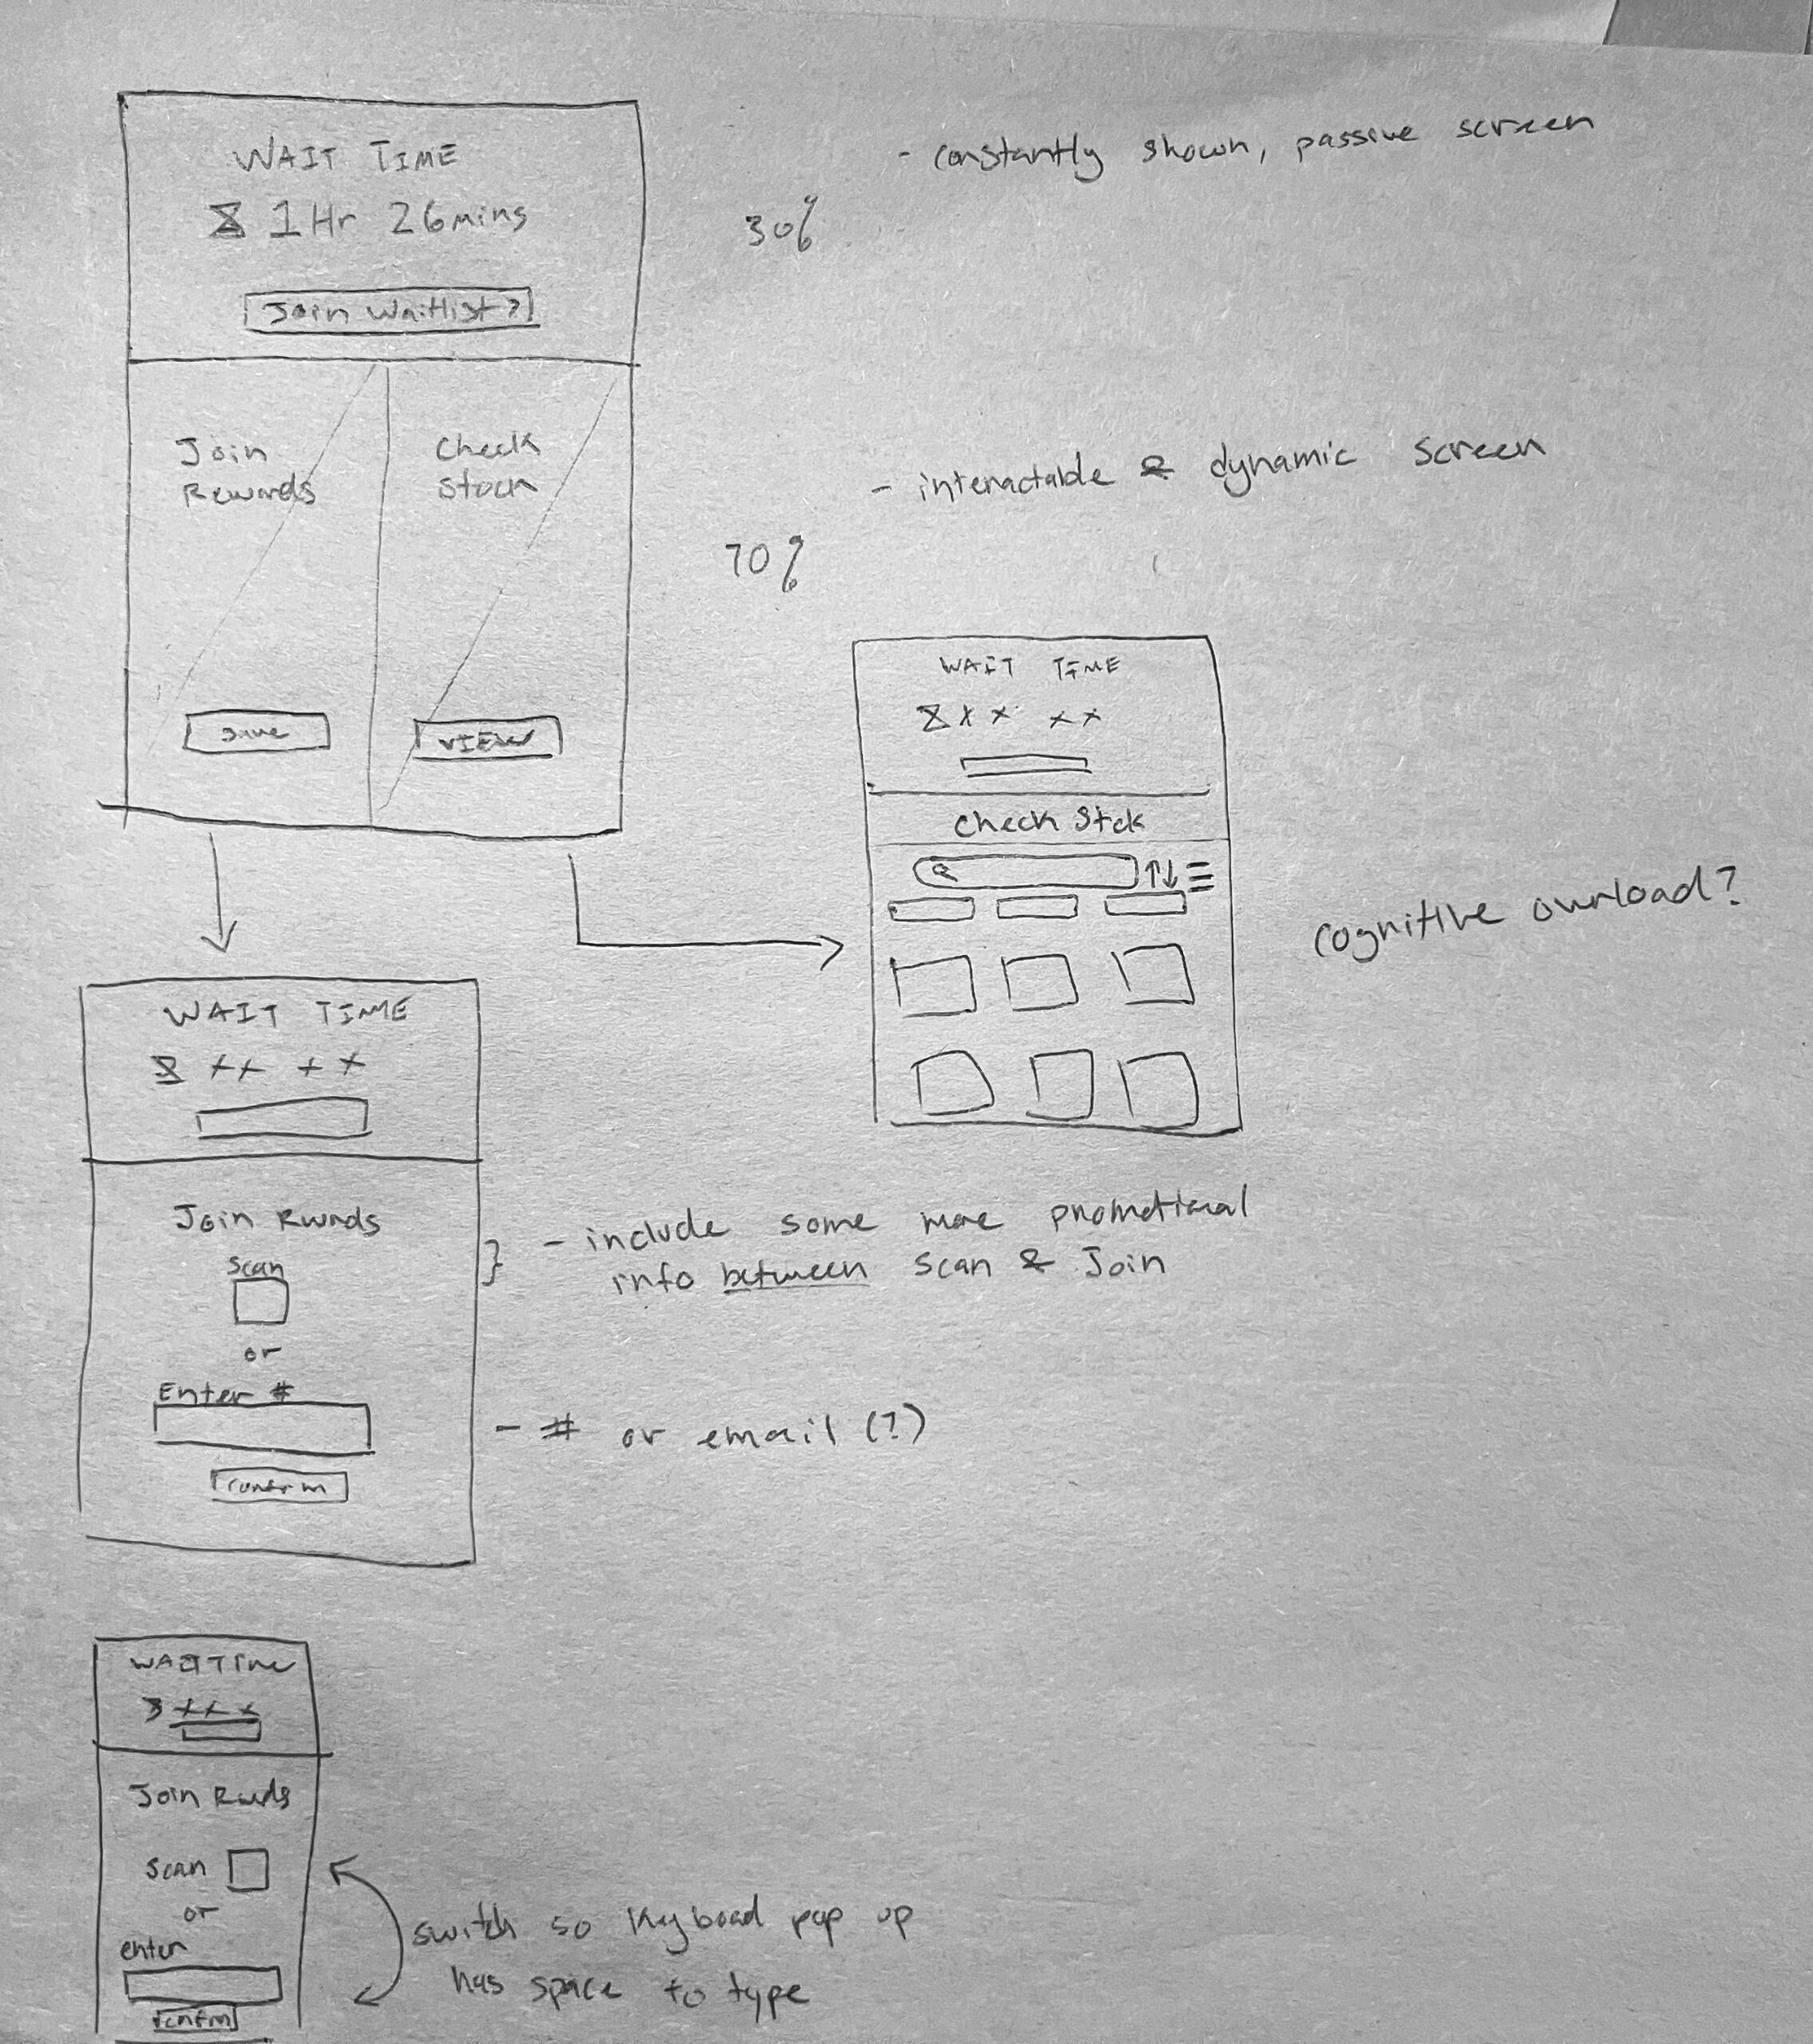 WAIT TIME
1 Hr 26 mins
Join Waitlist?
- constantly shown, passive screen
30%
Join
Rewards
Check
Stock
- interactable & dynamic screen
70%
save
VIEW
WAIT TIME
x x x x
Check Stck
cognitive overload?
WAIT TIME
x x x x
Join Rwrds
Scan
- include some more promotional
info between Scan & Join
or
Enter #
- # or email (?)
confirm
WAIT TIME
x x x
Join Rwds
scan
or
enter
confirm
switch so keyboard pop up
has space to type